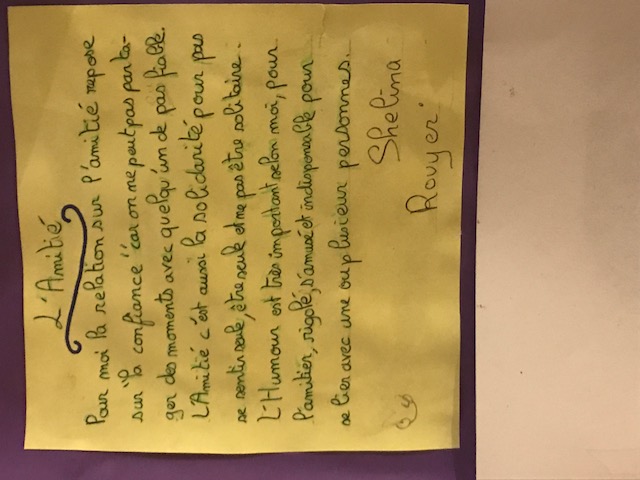 L'Amitié
Pour moi la relation sur l'amitié repose
sur "la confiance" car on ne peut pas parta-
ger des moments avec quelqu'un de pas fiable.
L'Amitié c'est aussi la solidarité pour pas
se sentir seule, être seule et ne pas être solitaire.
L'Humour est très important selon moi, pour
l'amitier, rigolé, s'amusé et indispensable pour
se lier avec une ou plusieur personnes.
Shelina
Rouyer.